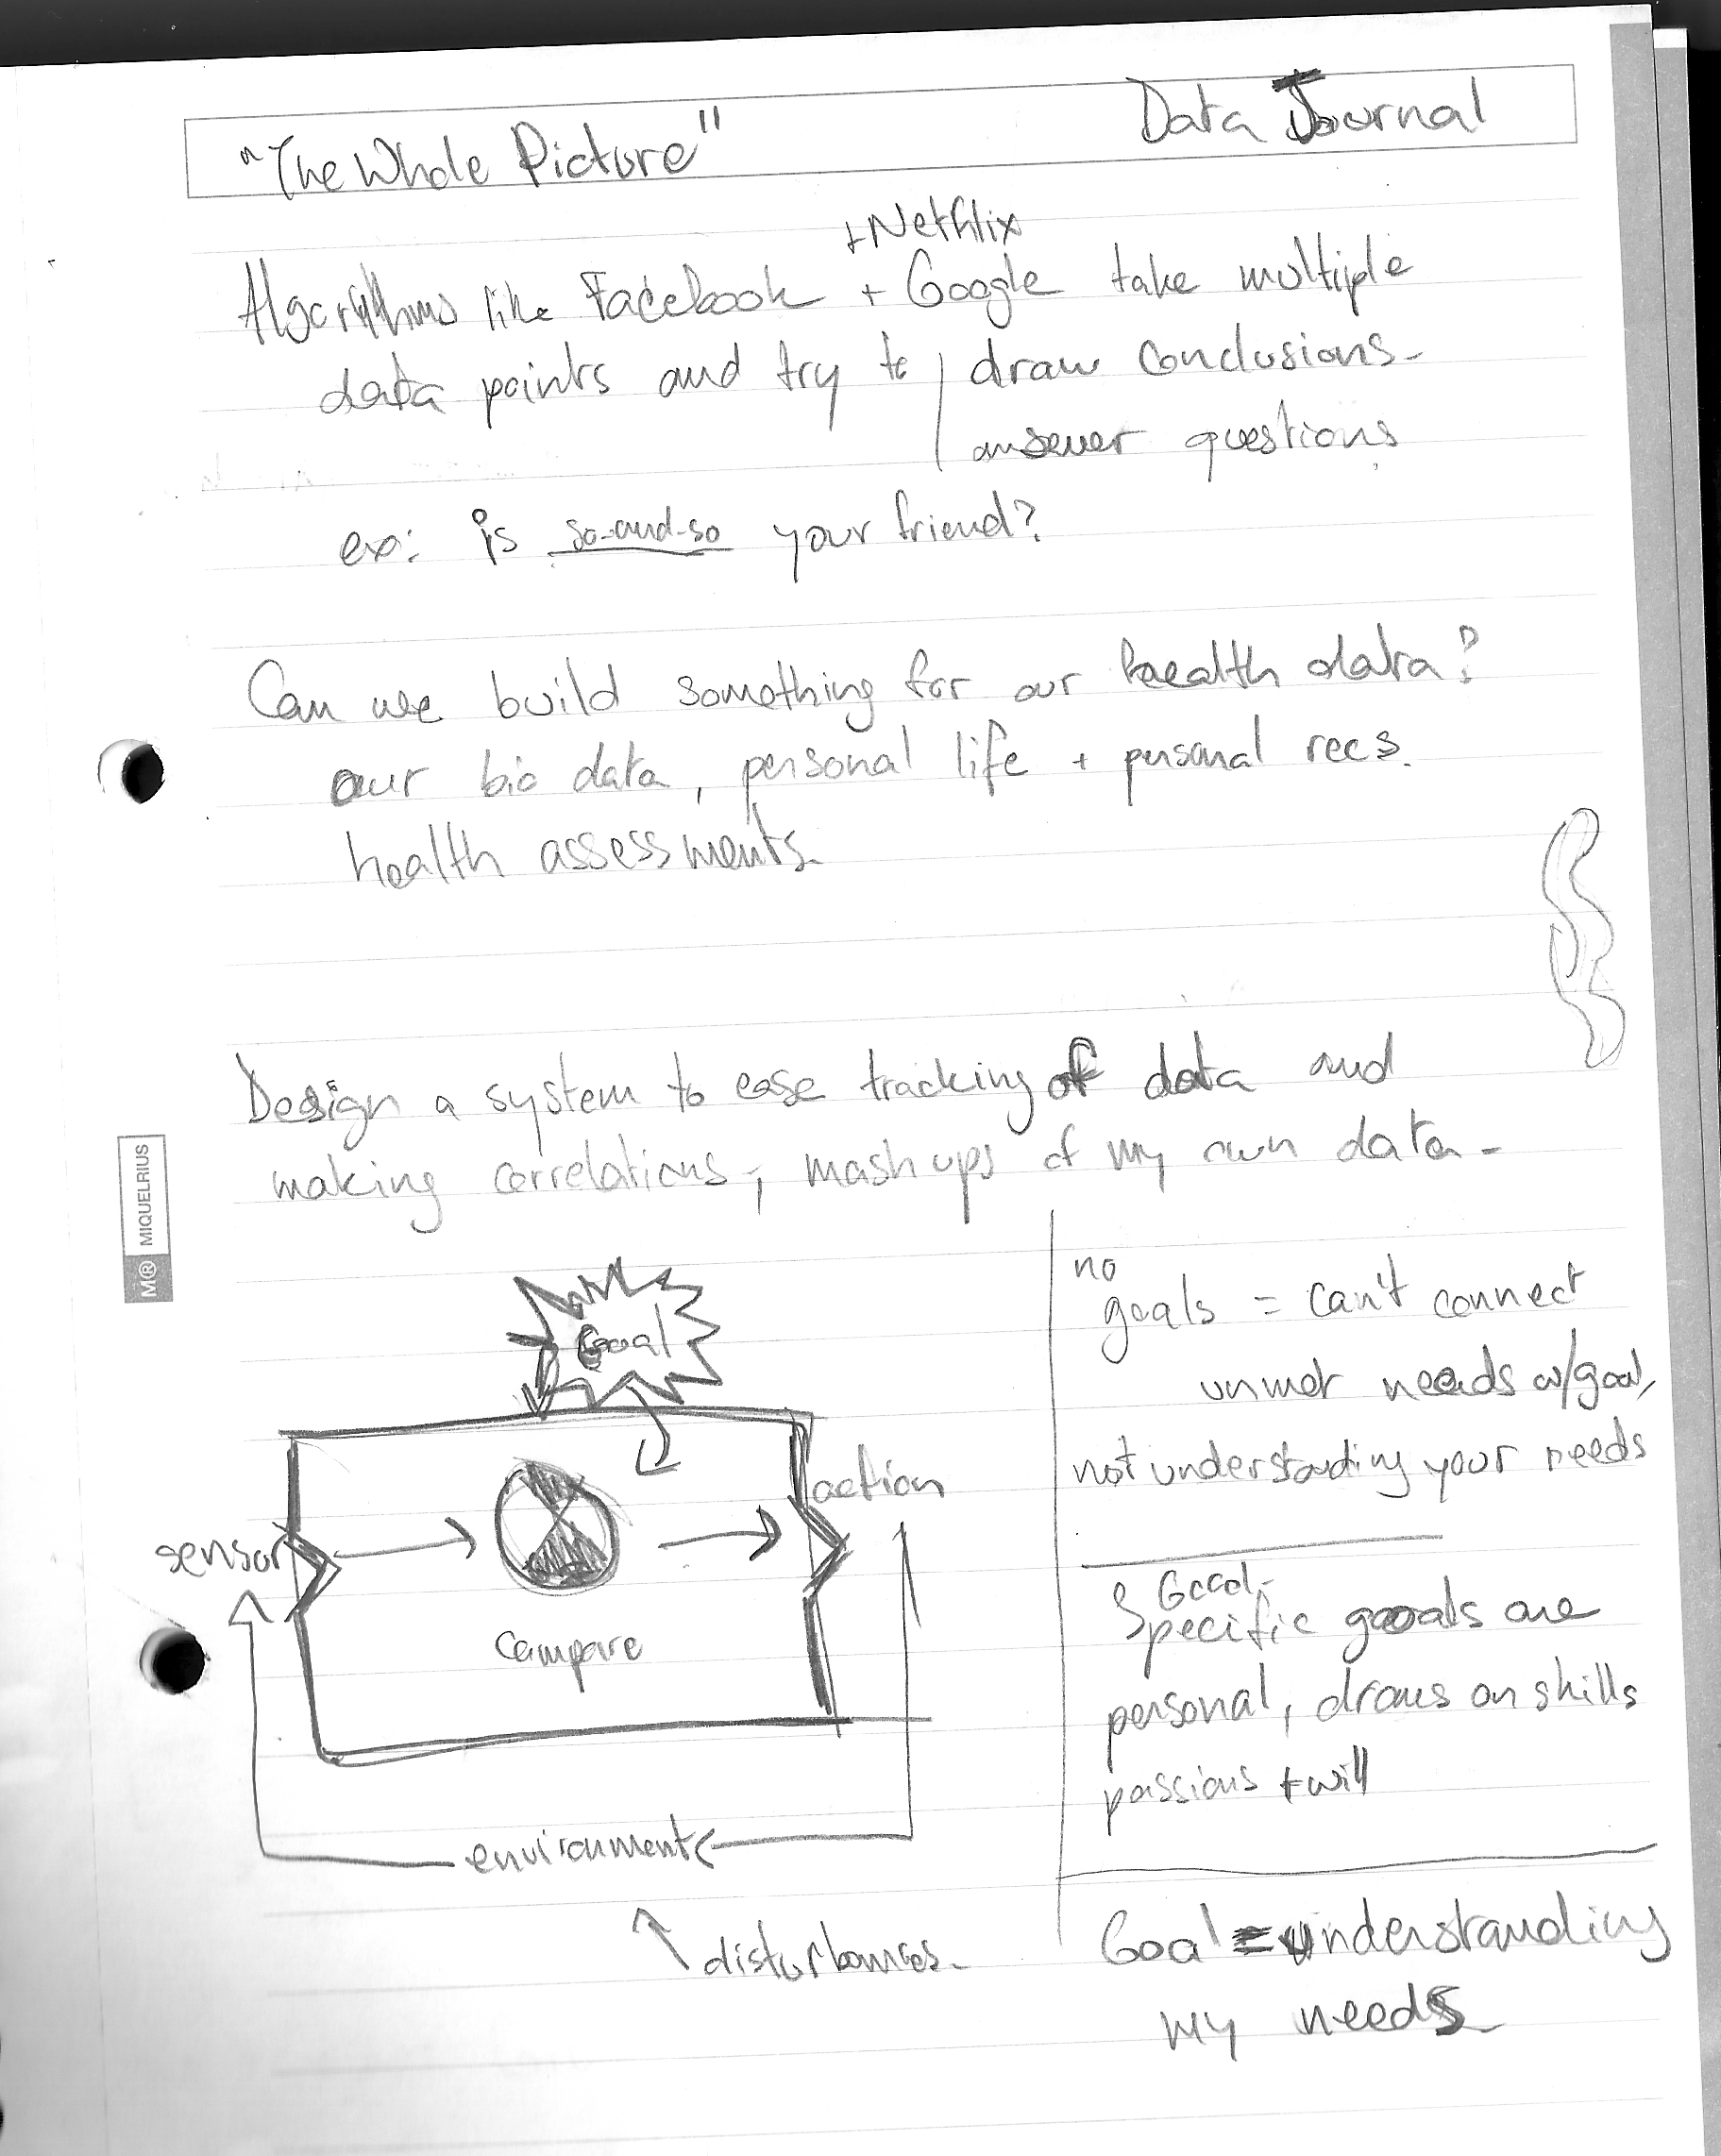 "The Whole Picture"
Data Journal
+Netflix
Algorithms like Facebook + Google take multiple
data points and try to draw conclusions-
answer questions
ex: is so-and-so your friend?
Can we build something for our health data?
our bio data, personal life + personal recs.
health assessments.
Design a system to ease tracking of data and
making correlations, mashups of my own data-
M® MIQUELRIUS
Goal
sensor
action
Compare
environment
disturbances-
no
goals = can't connect
unmet needs w/goal,
not understanding your needs
Good-
Specific goals are
personal, draws on skills
passions + will
Goal = understanding
my needs